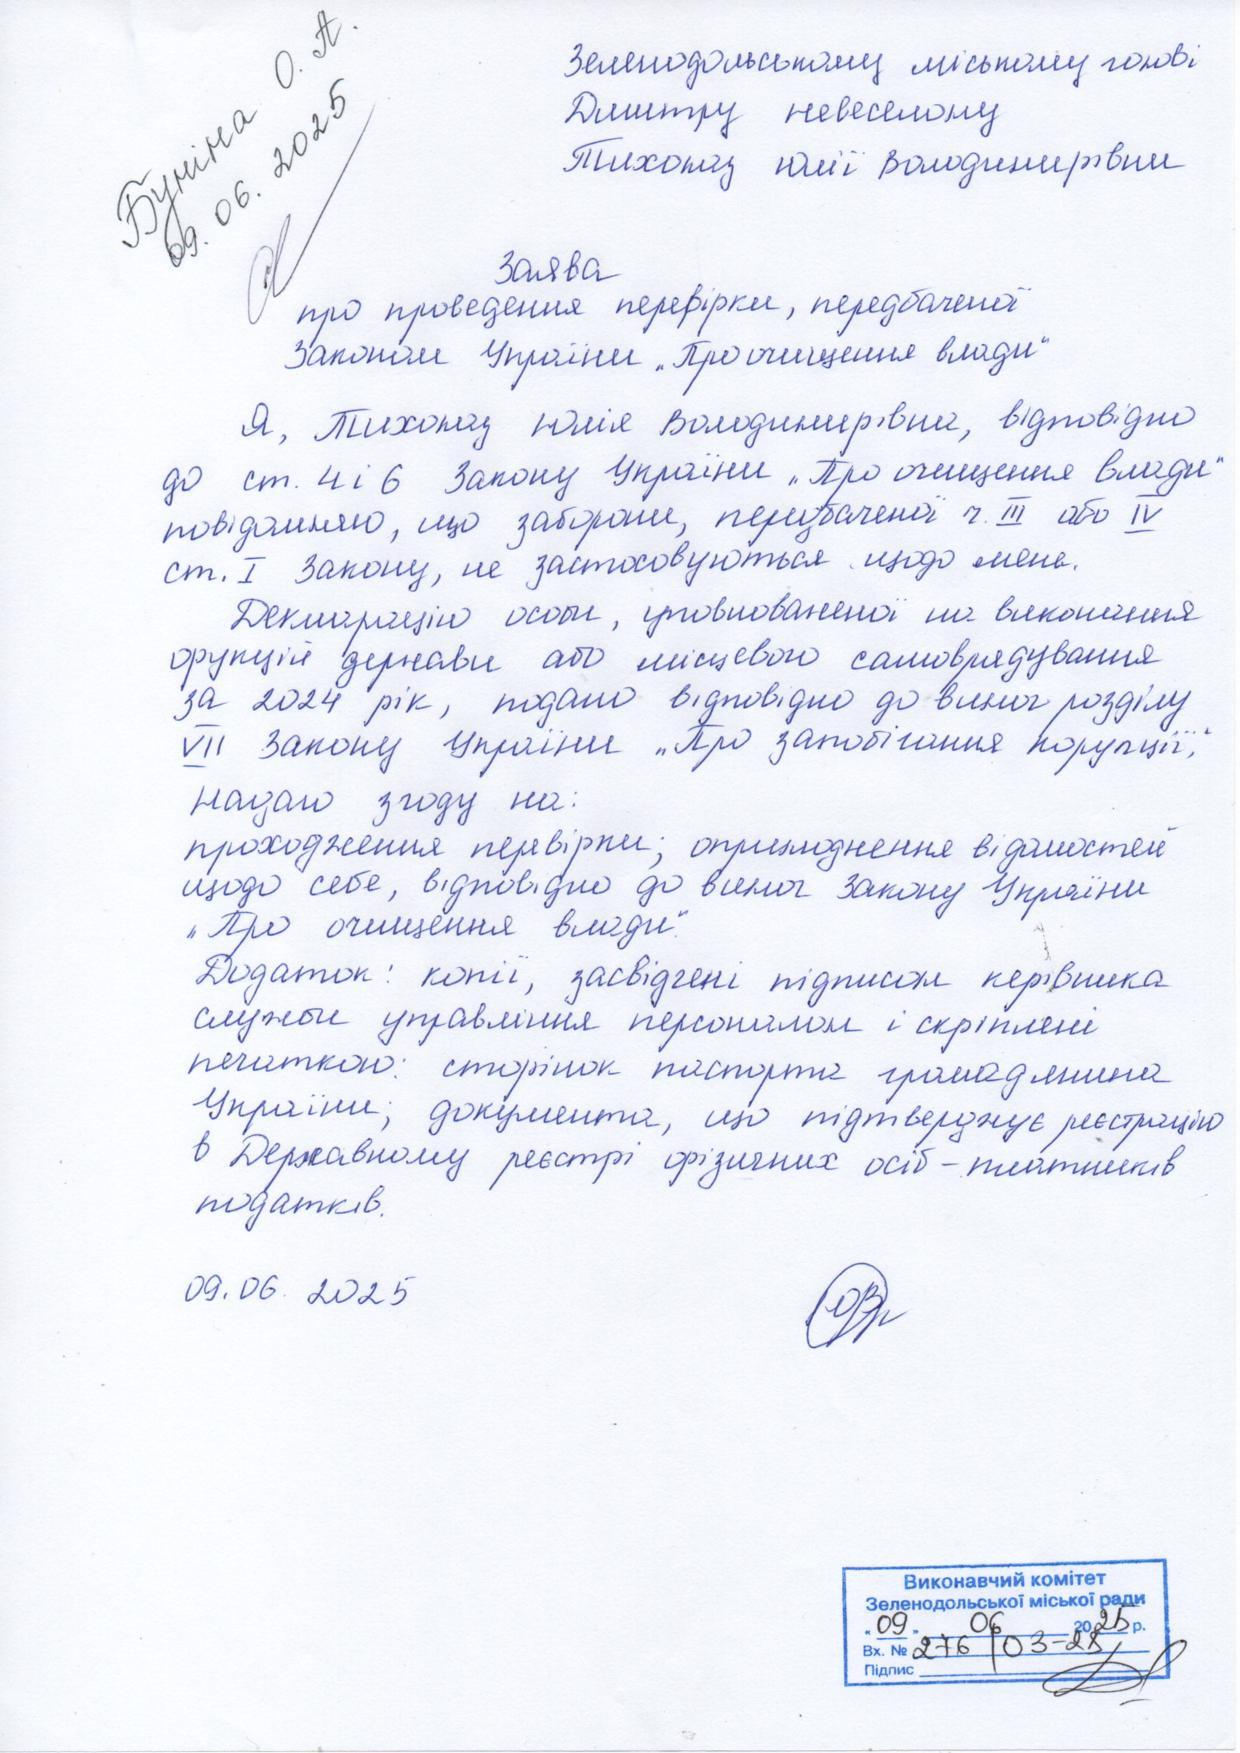 Буніна О. А.
09. 06. 2025
Зеленодольському міському голові
Дмитру Невеселому
Тихопаз Юлії Володимирівни
Заява
про проведення перевірки, передбаченої
Законом України „Про очищення влади“
Я, Тихопаз Юлія Володимирівна, відповідно
до ст. 4 і 6 Закону України „Про очищення влади“
повідомляю, що заборони, передбаченої ч. III або IV
ст. I Закону, не застосовуються щодо мене.
Декларацію особи, уповноваженої на виконання
функцій держави або місцевого самоврядування
за 2024 рік, подано відповідно до вимог розділу
VII Закону України „Про запобігання корупції“.
Надаю згоду на:
проходження перевірки; оприлюднення відомостей
щодо себе, відповідно до вимог Закону України
„Про очищення влади“.
Додаток: копії, засвідчені підписом керівника
служби управління персоналом і скріплені
печаткою: сторінок паспорта громадянина
України; документа, що підтверджує реєстрацію
в Державному реєстрі фізичних осіб – платників
податків.
09. 06. 2025
Виконавчий комітет
Зеленодольської міської ради
„ 09 „ 06 2025 р.
Вх. № 276/03-28
Підпис